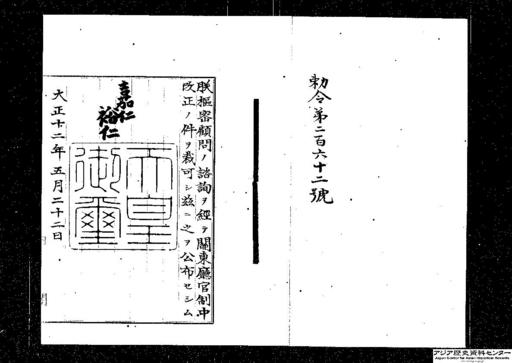 勅令第二百六十二號
朕樞密顧問ノ諮詢ヲ經テ關東廳官制中
改正ノ件ヲ裁可シ茲ニ之ヲ公布セシム
嘉仁
裕仁
天皇
御璽
大正十二年五月二十二日
アジア歴史資料センター
Japan Center for Asian Historical Records